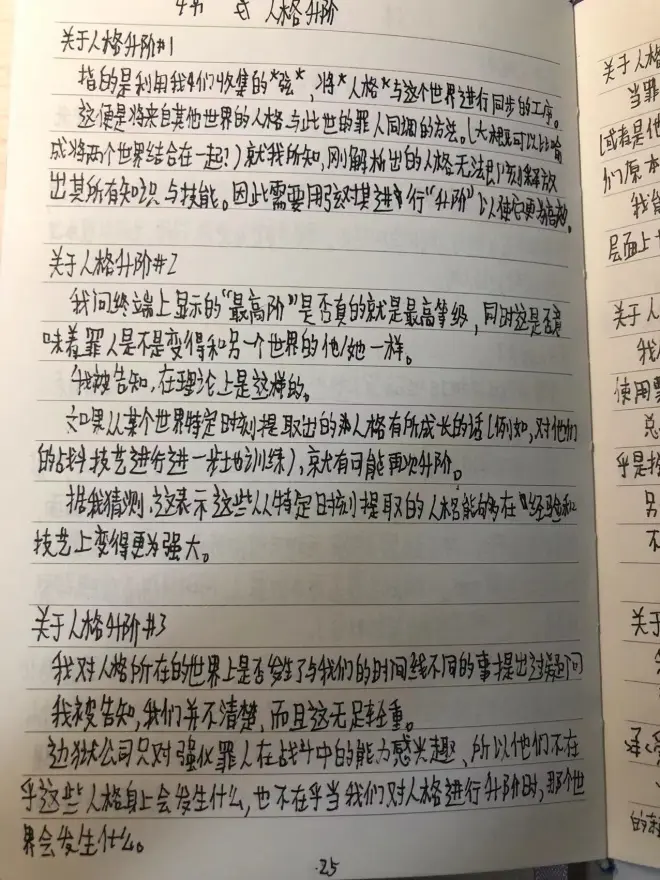 人格升阶
关于人格升阶#1
指的是利用我们收集的*弦*,将*人格*与这个世界进行同步的工序。
这便是将来自其他世界的人格与此世的罪人同调的方法。(大概可以比喻
成将两个世界结合在一起?)就我所知,刚解析出的人格无法即刻释放
出其所有知识与技能。因此需要用弦对其进行“升阶”以使它更为高效。
关于人格升阶#2
我问终端上显示的“最高阶”是否真的就是最高等级,同时这是否意
味着罪人是不是变得和另一个世界的他/她一样。
我被告知,在理论上是这样的。
如果从某个世界特定时刻提取出的人格有所成长的话(例如,对他们
的战斗技艺进行进一步地训练),就有可能再次升阶。
据我猜测,这表示这些从特定时刻提取的人格能够在经验和
技艺上变得更为强大。
关于人格升阶#3
我对人格所在的世界上是否发生了与我们的时间线不同的事提出过疑问
我被告知,我们并不清楚,而且这无足轻重。
边狱公司只对强化罪人在战斗中的能力感兴趣,所以他们不在
乎这些人格身上会发生什么,也不在乎当我们对人格进行升阶时,那个世
界会发生什么。
·25
关于人格
当罪
(或者是他
们原本
我能
层面上
关于人
我
使用
总
乎是
另
不
关于
的